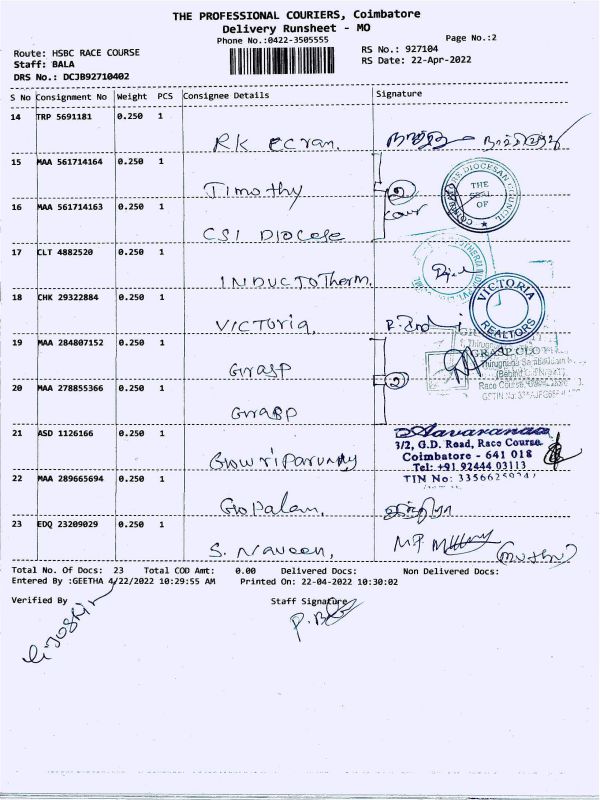 THE PROFESSIONAL COURIERS, Coimbatore
Delivery Runsheet - MO
Phone No.:0422-3505555
Page No.:2
Route: HSBC RACE COURSE
RS No.: 927104
Staff: BALA
RS Date: 22-Apr-2022
DRS No.: DCJB92710402
S No Consignment No Weight PCS Consignee Details Signature
14 TRP 5691181 0.250 1
RK ecran.
15 MAA 561714164 0.250 1
Timothy
16 MAA 561714163 0.250 1
CSI Diocese
THE DIOCESAN COUNCIL
THE
OF
17 CLT 4882520 0.250 1
INDUCTOTherm.
18 CHK 29322884 0.250 1
VICToria.
VICTORIA
REALTORS
19 MAA 284807152 0.250 1
Grasp
20 MAA 278855366 0.250 1
Grasp
Race Course,
21 ASD 1126166 0.250 1
Aavaranaa
3/2, G.D. Road, Race Course
Coimbatore - 641 018
Tel: +91 92444 03113
TIN No:
22 MAA 289665694 0.250 1
Gopalan.
23 EDQ 23209029 0.250 1
S. Naveen,
Total No. Of Docs: 23 Total COD Amt: 0.00 Delivered Docs: Non Delivered Docs:
Entered By :GEETHA 4/22/2022 10:29:55 AM Printed On: 22-04-2022 10:30:02
Verified By Staff Signature